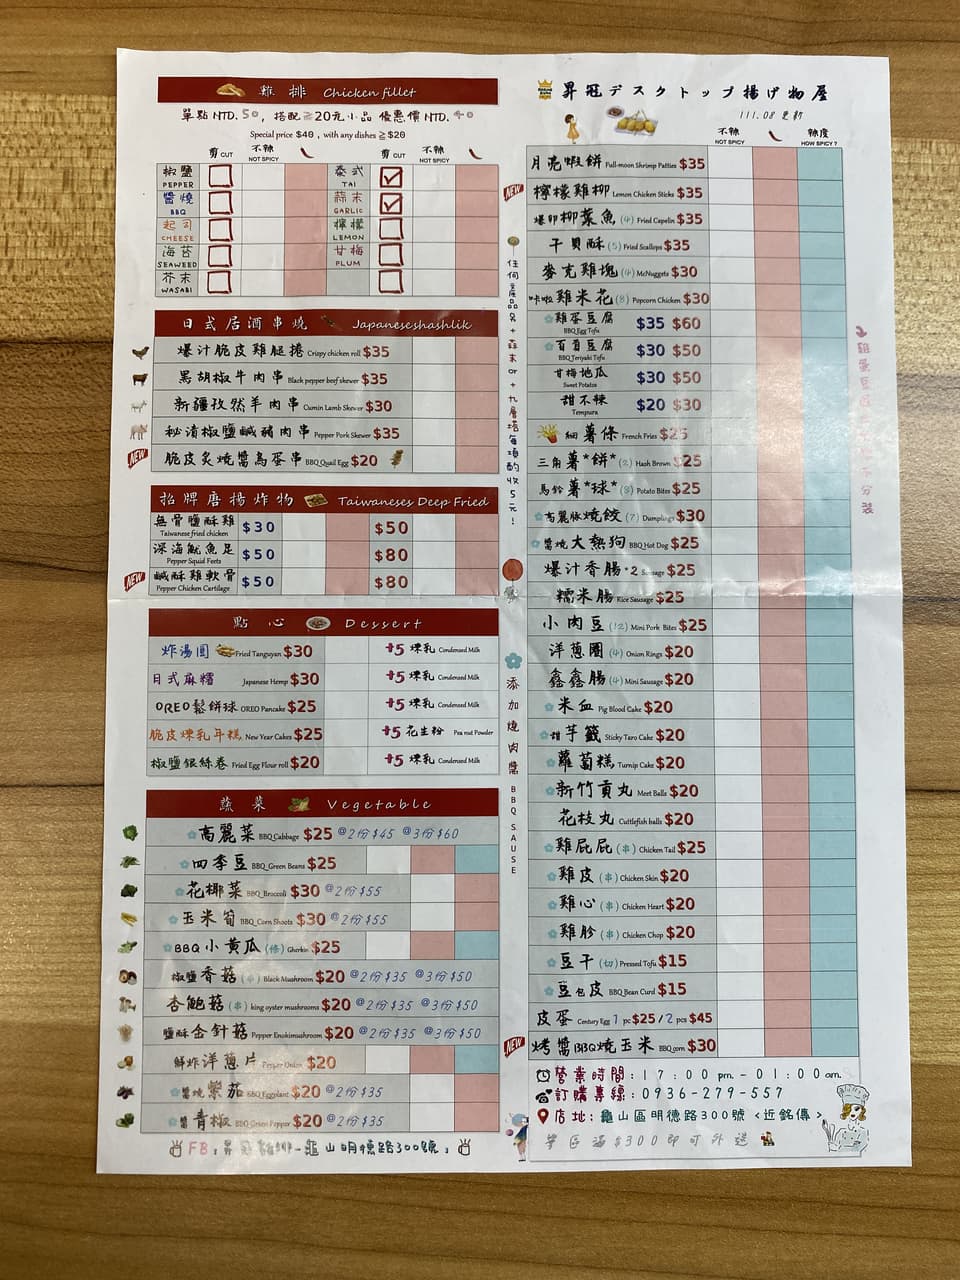 雞排 Chicken fillet
單點 NTD. 50, 搭配≧20元小品 優惠價 NTD. 40
Special price $40 , with any dishes ≧ $20
剪 CUT 不辣 NOT SPICY 剪 CUT 不辣 NOT SPICY
椒鹽 PEPPER 泰式 TAI
醬燒 BBQ 蒜末 GARLIC
起司 CHEESE 檸檬 LEMON
海苔 SEAWEED 甘梅 PLUM
芥末 WASABI
日式居酒串燒 Japaneseshashlik
爆汁脆皮雞腿捲 Crispy chicken roll $35
黑胡椒牛肉串 Black pepper beef skewer $35
新疆孜然羊肉串 Cumin Lamb Skewer $30
秘漬椒鹽鹹豬肉串 Pepper Pork Skewer $35
NEW 脆皮炙燒醬鳥蛋串 BBQ Quail Egg $20
招牌唐揚炸物 Taiwaneses Deep Fried
無骨鹽酥雞 Taiwanese fried chicken $30 $50
深海魷魚足 Pepper Squid Feets $50 $80
NEW 鹹酥雞軟骨 Pepper Chicken Cartilage $50 $80
點心 Dessert
炸湯圓 Fried Tanguyan $30 +5 煉乳 Condensed Milk
日式麻糬 Japanese Hemp $30 +5 煉乳 Condensed Milk
OREO鬆餅球 OREO Pancake $25 +5 煉乳 Condensed Milk
脆皮煉乳年糕 New Year Cakes $25 +5 花生粉 Pea nut Powder
椒鹽銀絲卷 Fried Egg Flour roll $20 +5 煉乳 Condensed Milk
蔬菜 Vegetable
高麗菜 BBQ_Cabbage $25 @2份$45 @3份$60
四季豆 BBQ_Green Beans $25
花椰菜 BBQ_Broccoli $30 @2份$55
玉米筍 BBQ_Corn Shoots $30 @2份$55
BBQ小黃瓜(條) Gherkin $25
椒鹽香菇(串) Black Mushroom $20 @2份$35 @3份$50
杏鮑菇(串) king oyster mushrooms $20 @2份$35 @3份$50
鹽酥金針菇 Pepper Enokimushroom $20 @2份$35 @3份$50
鮮炸洋蔥片 Pepper Onion $20
醬燒紫茄 BBQ Eggplant $20 @2份$35
醬青椒 BBQ Green Pepper $20 @2份$35
FB:昇冠雞排-龜山明德路300號
昇冠デスクトップ揚げ物屋
111.08 更新
不辣 NOT SPICY 辣度 HOW SPICY ?
月亮蝦餅 Full-moon Shrimp Patties $35
NEW 檸檬雞柳 Lemon Chicken Sticks $35
爆卵柳葉魚(4) Fried Capelin $35
干貝酥(5) Fried Scallops $35
麥克雞塊(4) McNuggets $30
咔啦雞米花(8) Popcorn Chicken $30
雞蛋豆腐 BBQ Egg Tofu $35 $60
百頁豆腐 BBQ Teriyaki Tofu $30 $50
甘梅地瓜 Sweet Potatos $30 $50
甜不辣 Tempura $20 $30
細薯條 French Fries $25
三角薯*餅*(2) Hash Brown $25
馬鈴薯*球*(8) Potato Bites $25
高麗豚燒餃(7) Dumplings $30
醬燒大熱狗 BBQ Hot Dog $25
爆汁香腸*2 Sausage $25
糯米腸 Rice Sausage $25
小肉豆(12) Mini Pork Bites $25
洋蔥圈(4) Onion Rings $20
鑫鑫腸(4) Mini Sausage $20
米血 Pig Blood Cake $20
甜芋籤 Sticky Taro Cake $20
蘿蔔糕 Turnip Cake $20
新竹貢丸 Meet Balls $20
花枝丸 Cuttlefish balls $20
雞屁屁(串) Chicken Tail $25
雞皮(串) Chicken Skin $20
雞心(串) Chicken Heart $20
雞胗(串) Chicken Chop $20
豆干(切) Pressed Tofu $15
豆包皮 BBQ Bean Curd $15
皮蛋 Century Egg 1 pc $25/2 pcs $45
NEW 烤醬BBQ燒玉米 BBQ_corn $30
任何產品名+蒜末or+九層塔每項酌收5元!
添加燒肉醬 BBQ SAUSE
營業時間:17:00pm.-01:00am.
訂購專線:0936-279-557
店地:龜山區明德路300號<近銘傳>
滿$300即可外送